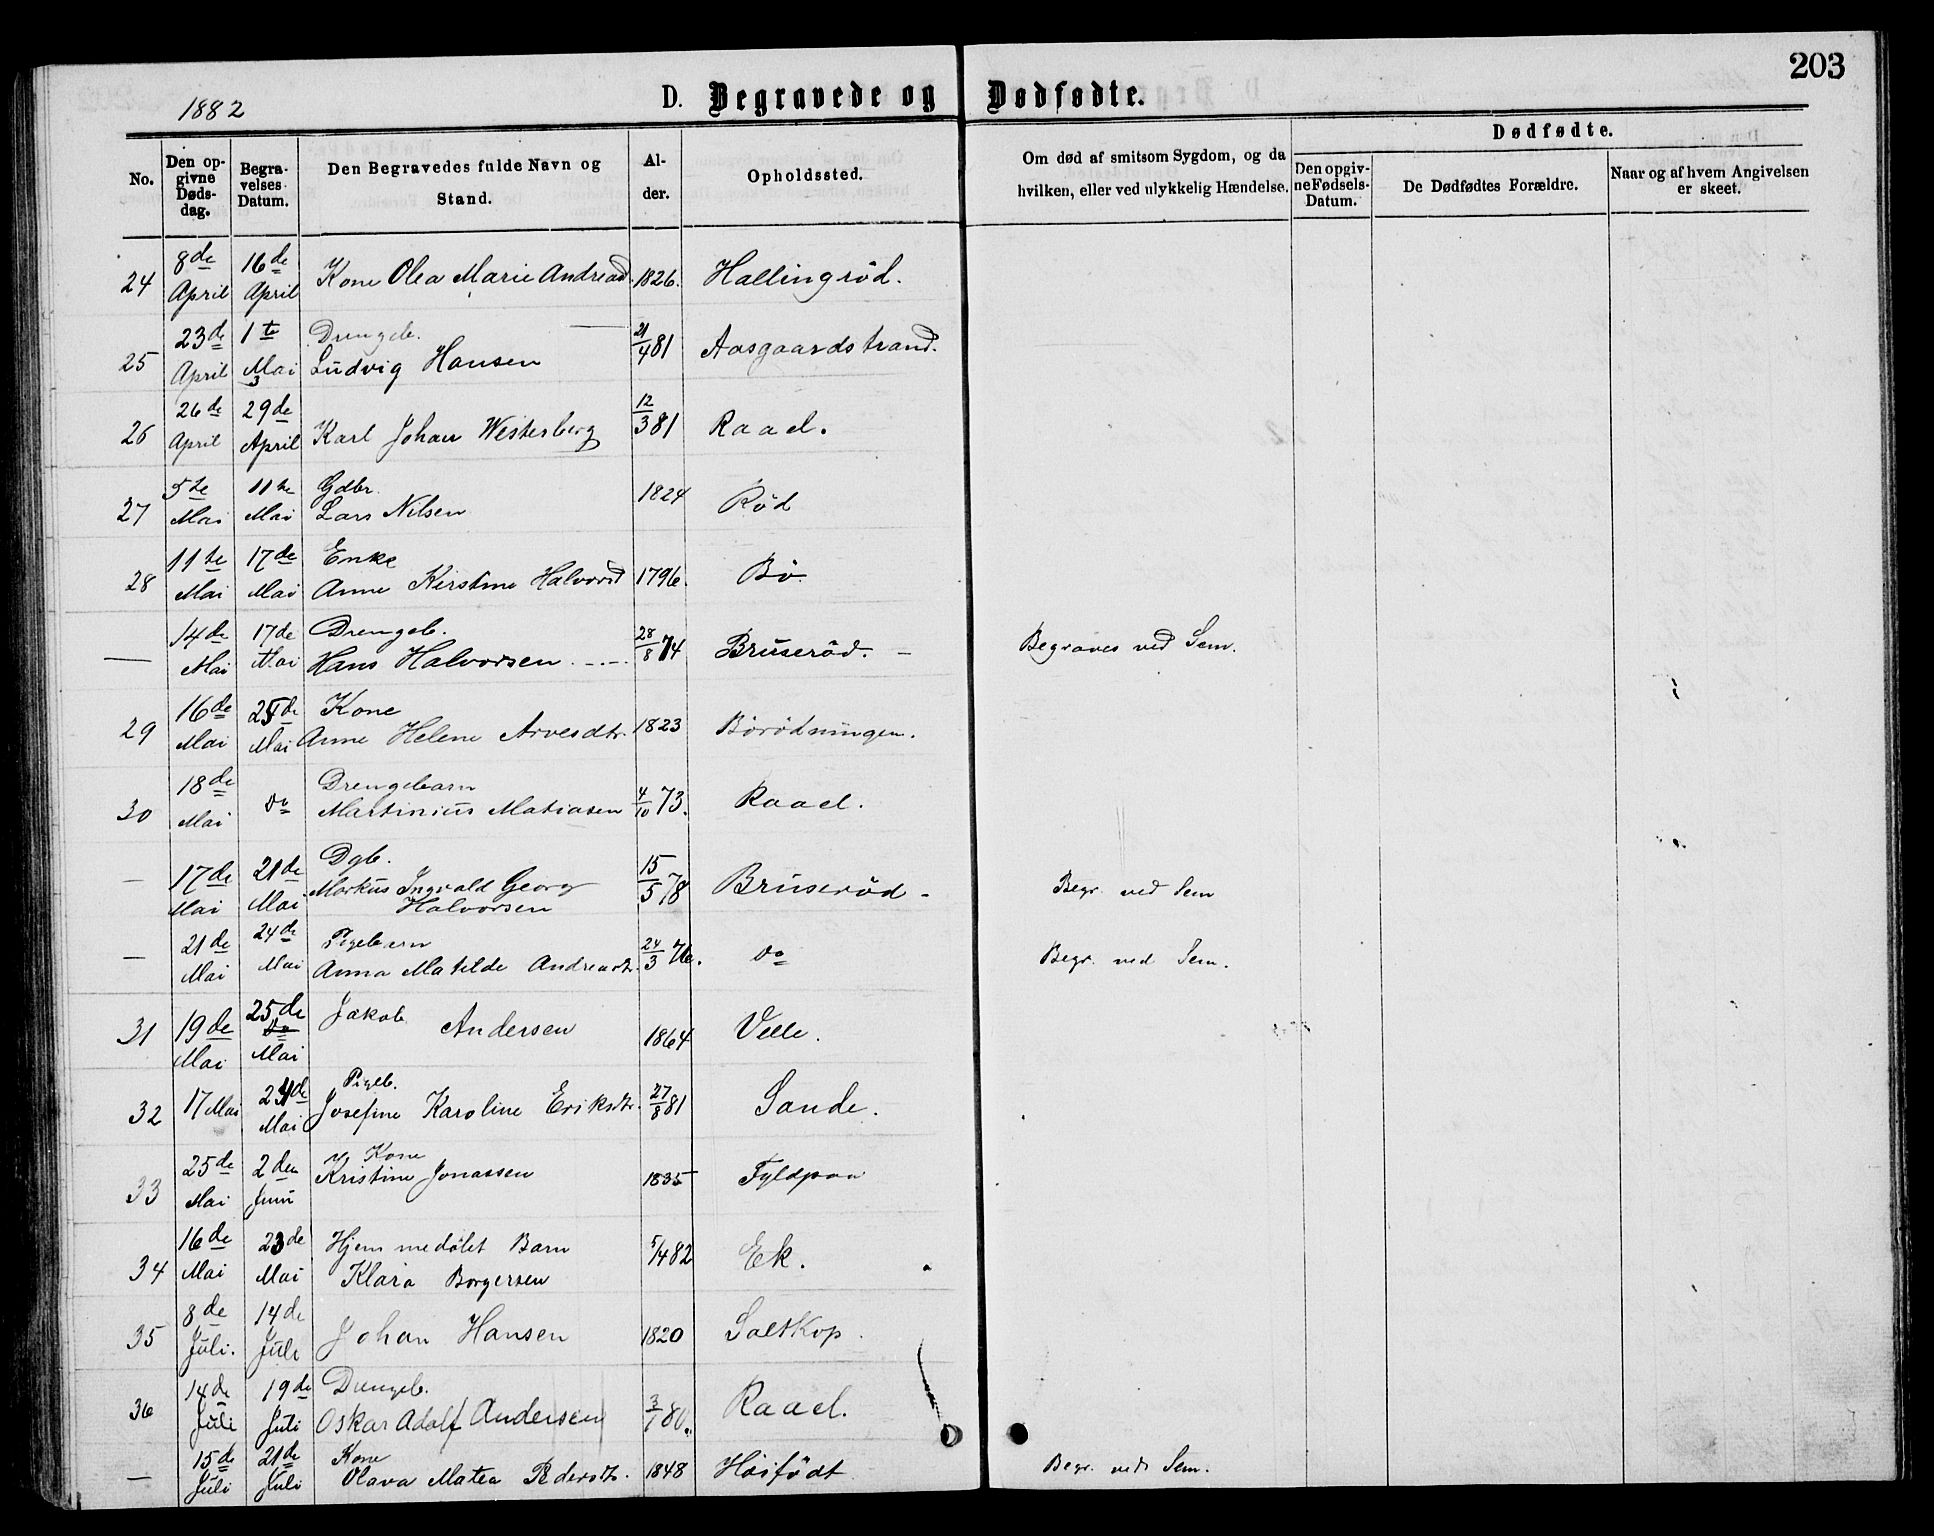 203
1882
D. Begravede og Dødfødte.
No.
Den opgivne Dødsdag.
Begravelses Datum.
Den Begravedes fulde Navn og Stand.
Alder.
Opholdssted.
Om død af smitsom Sygdom, og da hvilken, eller ved ulykkelig Hændelse.
Dødfødte.
Den opgivne Fødsels-Datum.
De Dødfødtes Forældre.
Naar og af hvem Angivelsen er skeet.
24 8de April 16de April Kone Olea Marie Andread. 1826. Hallingröd.
25 23de April 1te Mai Drengeb. Ludvig Hansen 21/4 81 Aasgaardstrand.
26 26de April 29de April Karl Johan Westerberg 12/3 81 Raael.
27 5te Mai 11te Mai Gdbr. Lars Nilsen 1824 Röd
28 11te Mai 17de Mai Enke Anne Kirstine Halvorsd 1796. Bö
— 14de Mai 17de Mai Drengeb. Hans Halvorsen 28/8 74 Bruseröd. – Begraves ved Sem.
29 16de Mai Mai Kone Anne Helene Arvesdtr. 1823 Börödningen.
30 18de Mai do Drengebarn Martinius Matiasen 4/10 73. Raael.
— 17de Mai 21de Mai Dgb. Markus Ingvald Georg Halvorsen 15/5 78 Bruseröd – Begr. ved Sem
— 21de Mai 24de Mai Pigebarn Anna Matilde Andreadtr. 24/3 76. do Begr. ved Sem.
31 19de Mai 25de Mai Jakob Andersen 1864 Velle.
32 17 Mai 24de Mai Pigeb. Josefine Karoline Eriksdtr. 27/8 81 Sande.
33 25de Mai 2den Juni Kone Kristine Jonassen 1835 Fyldpaa
34 16de Mai 23de Mai Hjemmedöbt Barn Klara Borgersen 5/4 82 Ek.
35 8de Juli. 14de Juli Johan Hansen 1820 Saltkop.
36 14de Juli 19de Juli Drengeb. Oskar Adolf Andersen 3/1 80. Raael.
— 15de Juli 21de Juli Kone Olava Matea Pedersdtr. 1848 Höifödt Begr. ved Sem.